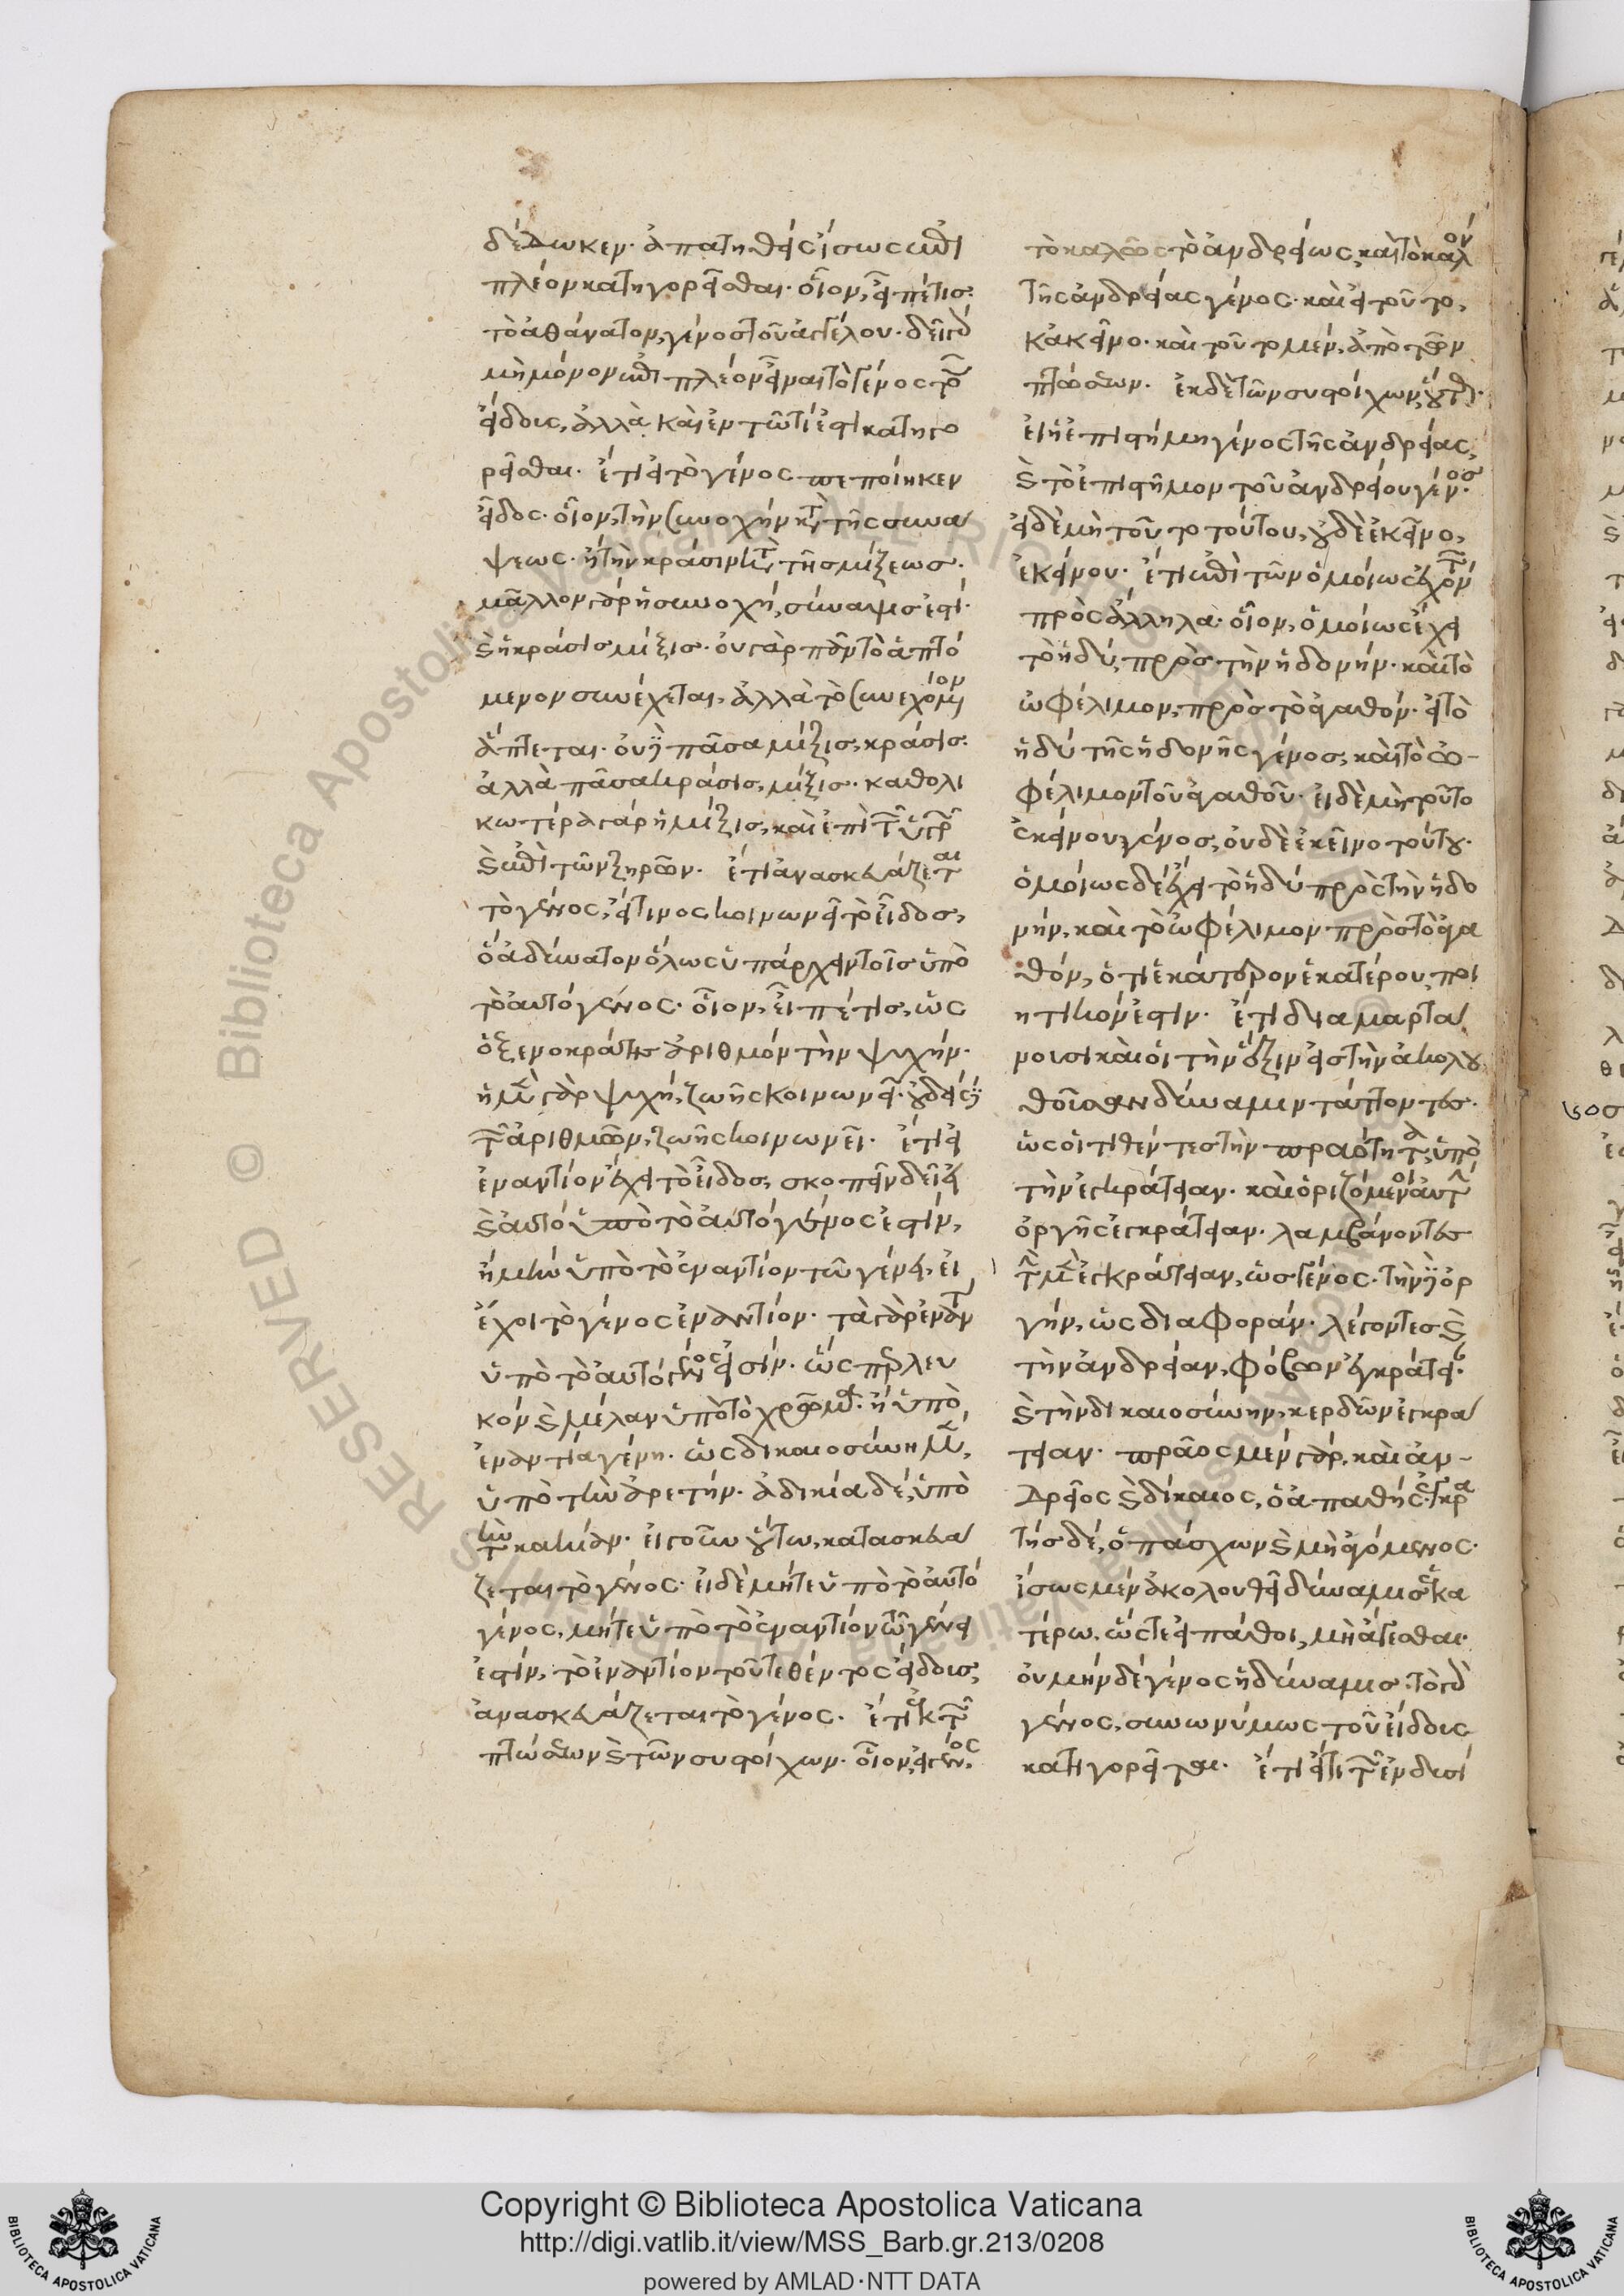 δέδωκεν· ἀπατηθεὶς ἴσως ἐπὶ
πλέον κατηγορεῖσθαι· οἷον, εἰ εἴπέ τις
τὸ ἀθάνατον, γένος τοῦ ἀγγέλου· δεῖ γὰρ
μὴ μόνον ἐπὶ πλέον εἶναι τὸ γένος τοῦ
εἴδους, ἀλλὰ καὶ ἐν τῶ τί ἐστι κατηγο
ρεῖσθαι· ἔτι εἰ τὸ γένος πεποίηκεν
εἶδος· οἷον, τὴν συνοχὴν κατὰ τῆς συνά
ψεως· ἢ τὴν κρᾶσιν κατὰ τῆς μίξεως·
μᾶλλον γὰρ ἡ συνοχή, σύναψις ἐστί·
καὶ ἡ κρᾶσις μίξις· οὐ γὰρ πᾶν τὸ ἁπτό
μενον συνέχεται, ἀλλὰ τὸ συνεχόμενον
ἅπτεται· οὐδὲ πᾶσα μίξις, κρᾶσις·
ἀλλὰ πᾶσα κρᾶσις, μίξις· καθολι
κωτέρα γὰρ ἡ μίξις, καὶ ἐπὶ τῶν ὑγρῶν
καὶ ἐπὶ τῶν ξηρῶν· ἔτι ἀνασκευάζεται
τὸ γένος, εἴ τινος κοινωνεῖ τὸ εἶδος,
ὃ ἀδύνατον ὅλως ὑπάρχειν τοῖς ὑπὸ
τὸ αὐτὸ γένος· οἷον, εἴ εἴπέ τις, ὡς
ὁ ξενοκράτης ἀριθμὸν τὴν ψυχήν·
ἡ μὲν γὰρ ψυχή, ζωῆς κοινωνεῖ· οὐδεὶς δὲ
τῶν ἀριθμῶν, ζωῆς κοινωνεῖ· ἔτι εἰ
ἐναντίον ἔχει τὸ εἶδος, σκοπεῖν δεῖ εἰ
καὶ αὐτὸ ὑπὸ τὸ αὐτὸ γένος ἐστίν,
ἢ μὴν ὑπὸ τὸ ἐναντίον τῶ γένει, εἰ
ἔχοι τὸ γένος ἐναντίον· τὰ γὰρ ἐναντία
ὑπὸ τὸ αὐτὸ γένος εἰσίν· ὥσπερ λευ
κὸν καὶ μέλαν ὑπὸ τὸ χρῶμα· ἢ ὑπὸ
ἐναντία γένη· ὡς δικαιοσύνη μὲν,
ὑπὸ τὴν ἀρετήν· ἀδικία δέ, ὑπὸ
τὴν κακίαν· εἰ γοῦν οὕτω, κατασκευά
ζεται τὸ γένος· εἰ δὲ μήτε ὑπὸ τὸ αὐτὸ
γένος, μήτε ὑπὸ τὸ ἐναντίον τῶ γένει
ἐστίν, τὸ ἐναντίον τοῦ τεθέντος εἴδους,
ἀνασκευάζεται τὸ γένος· ἔτι ἐκ τῶν
πτώσεων καὶ τῶν συστοίχων· οἷον, εἰ γένος
τὸ καλῶς τὸ ἀνδρείως, καὶ τὸ καλὸν
τῆς ἀνδρείας γένος· καὶ εἰ τοῦτο,
κἀκεῖνο· καὶ τοῦτο μέν, ἀπὸ τῶν
πτώσεων· ἐκ δὲ τῶν συστοίχων, οὕτως·
εἰ ἡ ἐπιστήμη γένος τῆς ἀνδρείας,
καὶ τὸ ἐπιστῆμον τοῦ ἀνδρείου γένος·
εἰ δὲ μὴ τοῦτο τούτου, οὐδὲ ἐκεῖνο,
ἐκείνου· ἔτι ἐπὶ τῶν ὁμοίως ἐχόντων
πρὸς ἄλληλα· οἷον, ὁμοίως ἔχει
τὸ ἡδύ, πρὸς τὴν ἡδονήν· καὶ τὸ
ὠφέλιμον, πρὸς τὸ ἀγαθόν· εἰ τὸ
ἡδὺ τῆς ἡδονῆς γένος, καὶ τὸ ὠ-
φέλιμον τοῦ ἀγαθοῦ· εἰ δὲ μὴ τοῦτο
ἐκείνου γένος, οὐδὲ ἐκεῖνο τούτου·
ὁμοίως δὲ ἔχει τὸ ἡδὺ πρὸς τὴν ἡδο
νήν, καὶ τὸ ὠφέλιμον πρὸς τὸ ἀγα
θόν, ὅτι ἑκάτερον ἑκατέρου, ποι
ητικόν ἐστιν· ἔτι διαμαρτά
νουσι καὶ οἱ τὴν ἕξιν εἰς τὴν ἀκολου
θοῦσαν δύναμιν τάττοντες·
ὡς οἱ τιθέντες τὴν πραότητα, ὑπὸ
τὴν ἐγκράτειαν· καὶ ὁριζόμενοι αὐτὴν
ὀργῆς ἐγκράτειαν· λαμβάνοντες
τὴν μὲν ἐγκράτειαν, ὡς γένος· τὴν δὲ ὀρ
γήν, ὡς διαφοράν· λέγοντες καὶ
τὴν ἀνδρείαν, φόβων ἐγκράτειαν·
καὶ τὴν δικαιοσύνην, κερδῶν ἐγκρά
τειαν· πρᾶος μὲν γὰρ, καὶ ἀν-
δρεῖος καὶ δίκαιος, ὁ ἀπαθής· ἐγκρα
τὴς δέ, ὁ πάσχων καὶ μὴ ἀγόμενος·
ἴσως μὲν ἀκολουθεῖ δύναμις ἑκα
τέρω, ὥστε εἰ πάθοι, μὴ ἄγεσθαι·
οὐ μὴν δὲ γένος ἡ δύναμις· τὸ γὰρ
γένος, συνωνύμως τοῦ εἴδους
κατηγορεῖται· ἔτι εἴ τι τῶν ἐνδεσί